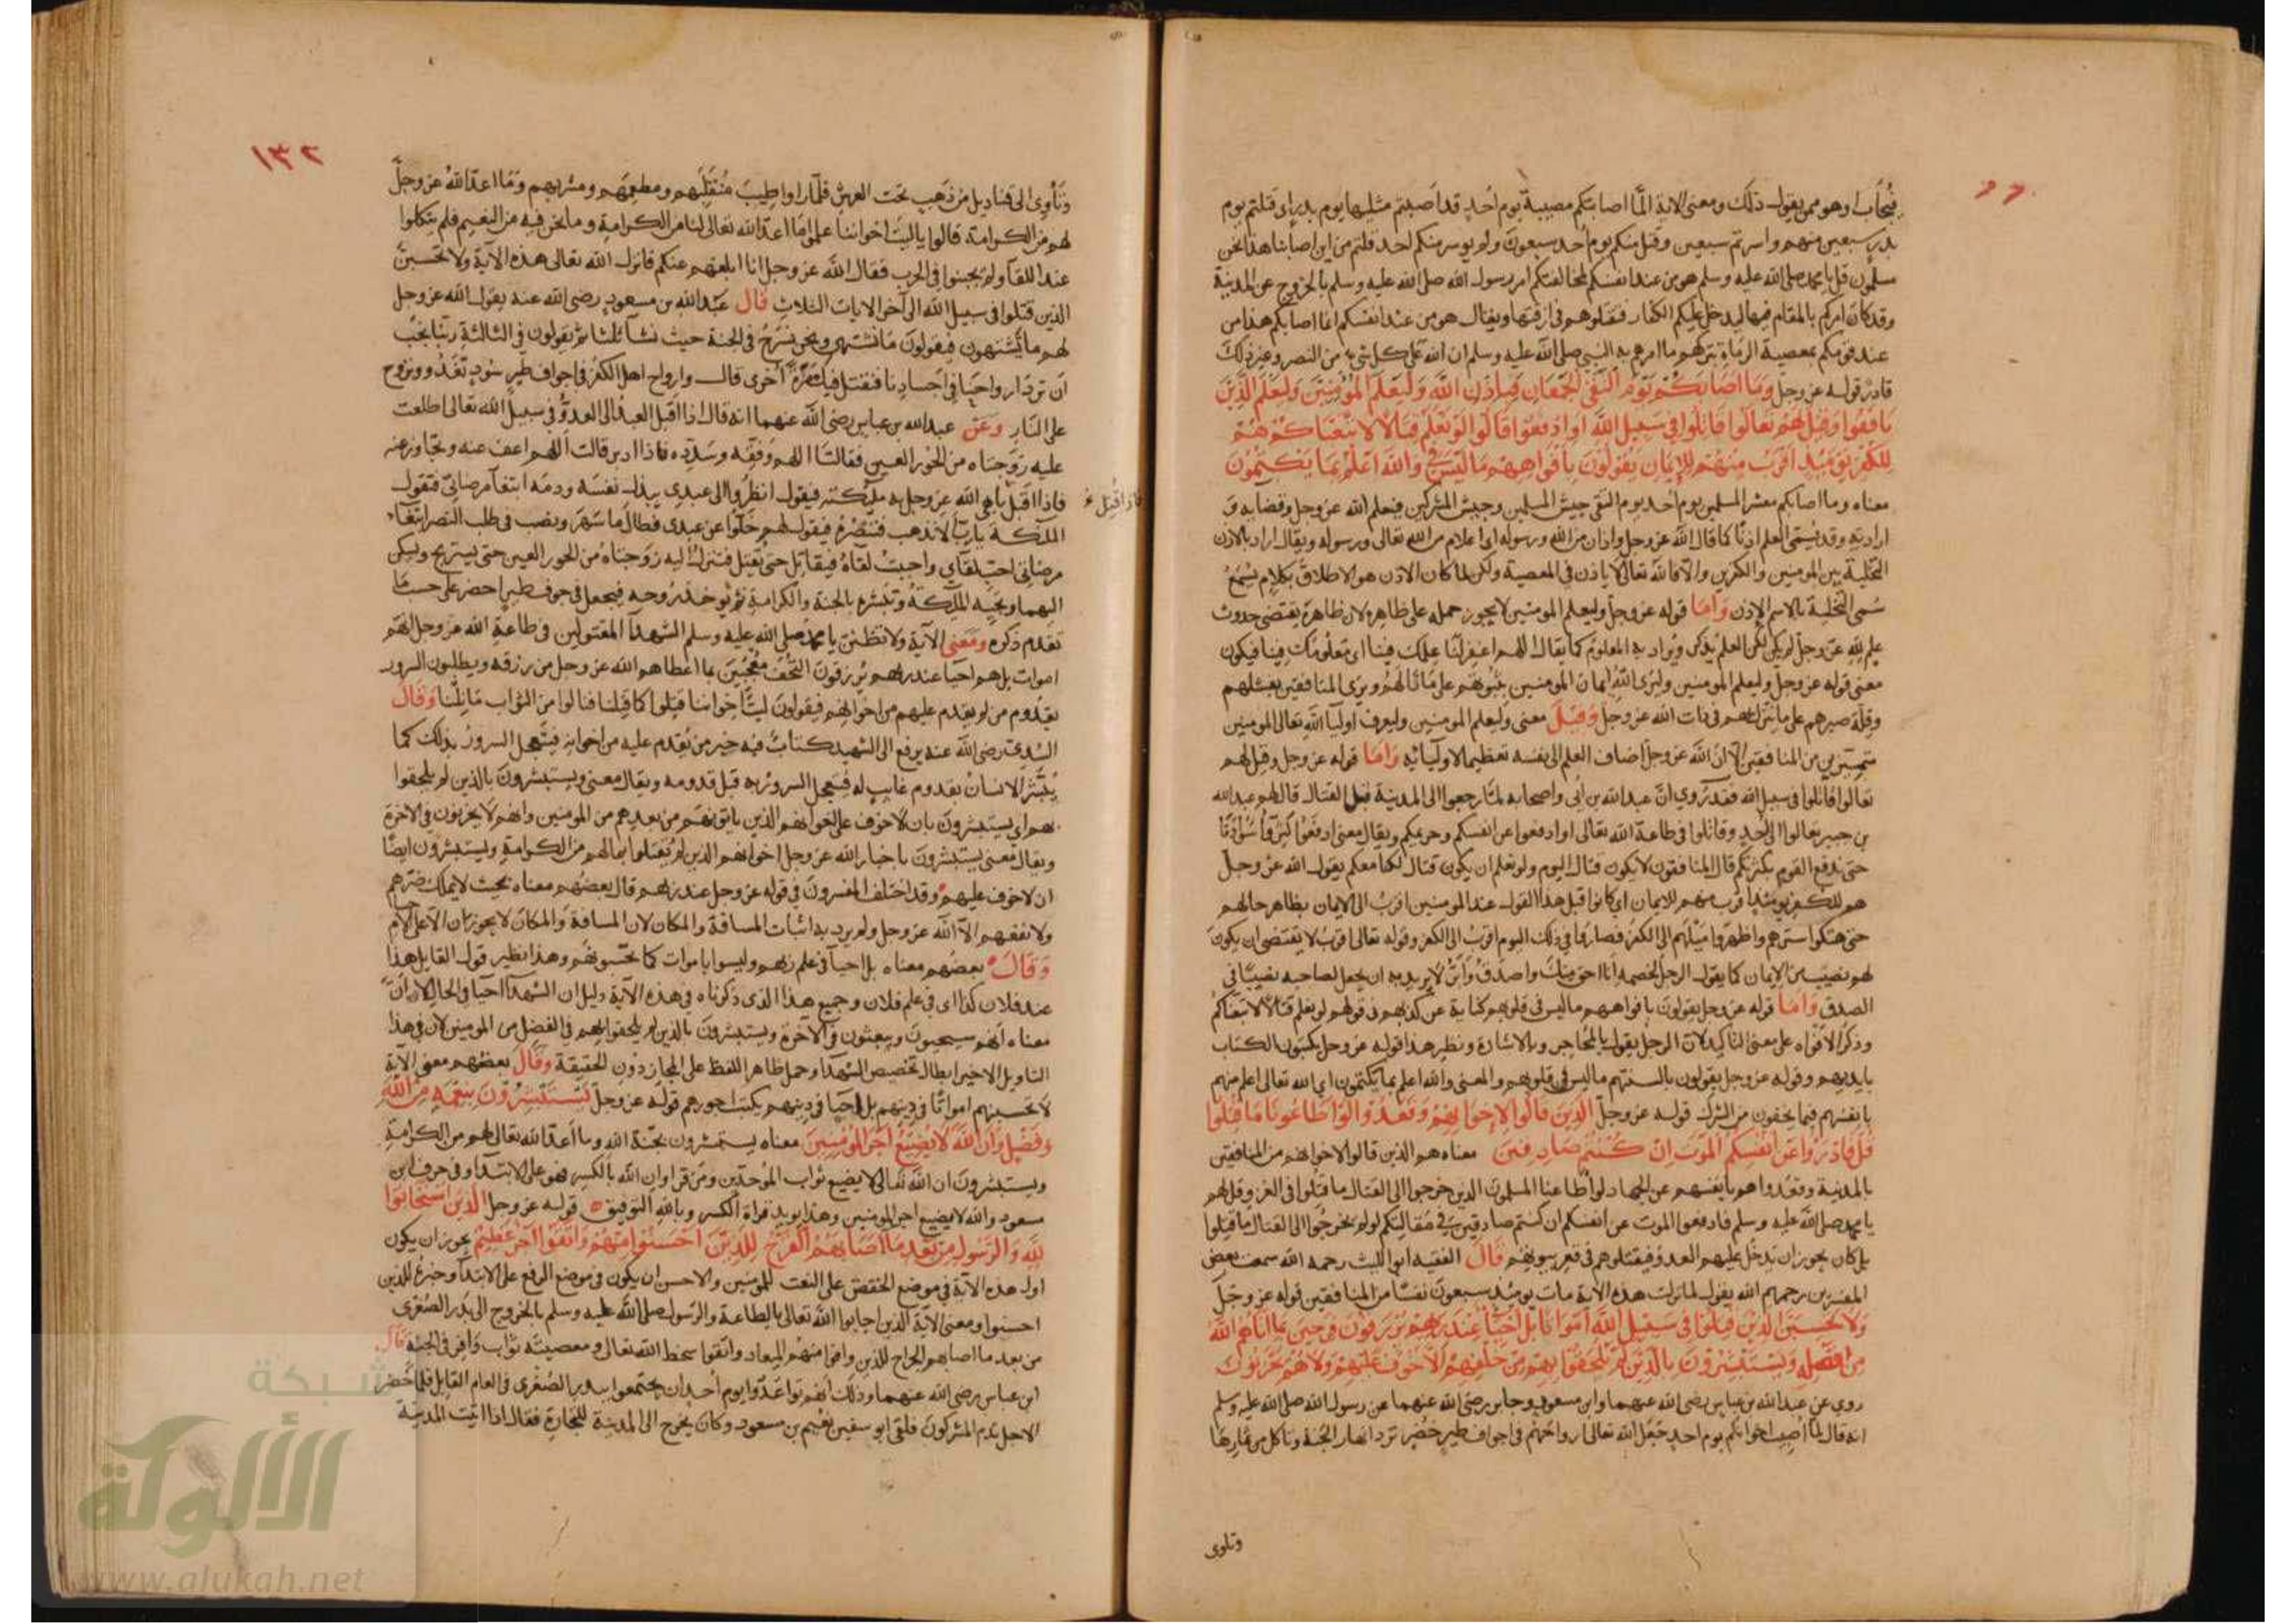 فيُجَاب اوهو ممن يقول ذلك ومعنى الاية الّما اصابتكم مصيبة يوم اُحدٍ قد اَصبتم مثليها يوم بدرٍ اى قتلتم يوم
بدرٍ سبعين منهم واسرتم سبعين وقتل منكم يوم اُحد سبعون ولم يوسر منكم احد قلتم من اين اصابنا هذا نحن
مسلمون قل يا محمد صلى الله عليه وسلم هو من عند انفسكم لمخالفتكم امر رسول الله صلى الله عليه وسلم بالخروج عن المدينة
وقد كان امركم بالمقام فيها ليدخل عليكم الكفار فتقتلوهم فى ازقتها ويقال هو من عند انفسكم انما اصابكم هذا من
عند قومكم بمعصية الرماة بتركهم ما امرهم به النبى صلى الله عليه وسلم ان الله على كل شئ من النصر وغير ذلك
قادر قوله عز وجل وَمَا اَصَابَكُمْ يَوْمَ الْتَقَى الْجَمْعَانِ فَبِاِذْنِ اللهِ وَلِيَعْلَمَ الْمُؤْمِنِينَ وَلِيَعْلَمَ الَّذِينَ
نَافَقُوا وَقِيلَ لَهُمْ تَعَالَوْا قَاتِلُوا فِي سَبِيلِ اللهِ اَوِ ادْفَعُوا قَالُوا لَوْ نَعْلَمُ قِتَالًا لَاتَّبَعْنَاكُمْ هُمْ
لِلْكُفْرِ يَوْمَئِذٍ اَقْرَبُ مِنْهُمْ لِلْاِيمَانِ يَقُولُونَ بِاَفْوَاهِهِمْ مَا لَيْسَ فِي وَاللهُ اَعْلَمُ بِمَا يَكْتُمُونَ
معناه وما اصابكم معشر المسلمين يوم اُحد يوم التقى جيش المسلمين وجيش المشركين فبعلم الله عز وجل وقضائه و
ارادته وقد يُسمّى العلم اذنًا كما قال الله عز وجل واذان من الله ورسوله اى اعلام من الله تعالى ورسوله ويقال اراد بالاذن
التخلية بين المومنين والكفرين والا فالله تعالى لا ياذن فى المعصية ولكن لما كان الاذن هو الاطلاق بكلام يُسْمَعُ
سُمى التخلية بالاسم الاذن وَامّا قوله عز وجل وليعلم المومنين لا يجوز حمله على ظاهره لان ظاهره يقتضى حدوث
علم لله عز وجل لم يكن لكن العلم يُذكر ويُراد به المعلوم كما يقال اللهم اغفر لنا علمك فينا اى معلومك فينا فيكون
معنى قوله عز وجل وليعلم المومنين وليرى الله ايمان المومنين بثبوتهم على ما نالهم ويرى المنافقين بفشلهم
وقلة صبرهم على ما نزل بهم فى ذات الله عز وجل وَقيلَ معنى وليعلم المومنين وليعرف اوليا الله تعالى المومنين
متميزين من المنافقين الا ان الله عز وجل اضاف العلم الى نفسه تعظيما لاوليائه وَامّا قوله عز وجل وقيل لهم
تعالوا قاتلوا فى سبيل الله فقد رُوى انّ عبد الله بن اُبى واصحابه لمّا رجعوا الى المدينة قبل القتال قال لهم عبد الله
بن جبير تعالوا الى اُحدٍ وقاتلوا فى طاعة الله تعالى او ادفعوا عن انفسكم وحريمكم ويقال معنى ادفعوا
حتى ندفع القوم بكثرتكم قال المنافقون لا يكون قتال اليوم ولو نعلم ان يكون قتال لكنا معكم يقول الله عز وجل
هم للكفر يومئذ اقرب منهم للايمان اى كانوا قبل هذا القول عند المومنين اقربُ الى الايمان بظاهر حالهم
حتى هتكوا سترهم واظهروا ميلهم الى الكفر فصاروا فى ذلك اليوم اقربَ الى الكفر وقوله تعالى اقربُ لا يقتضى ان يكون
لهم نصيب من الايمان كما يقول الرجل لخصمه انا احق منك واصدق وَابرُّ لا يريد به ان يجعل لصاحبه نصيبًا فى
الصدق وَامّا قوله عز وجل يقولون بافواههم ما ليس فى قلوبهم كناية عن كذبهم فى قولهم لو نعلم قتالا لاتبعناكم
وذكر الافواه على معنى التاكيد لان الرجل يقول بالمحاجر وبالاشارة ونظير هذا قوله عز وجل يكتبون الكتاب
بايديهم وقوله عز وجل يقولون بالسنتهم ما ليس فى قلوبهم والمعنى والله اعلم بما يكتمون اى الله تعالى اعلم منهم
بانفسهم فيما يخفون من الشرك قوله عز وجل الَّذِينَ قَالُوا لِاِخْوَانِهِمْ وَقَعَدُوا لَوْ اَطَاعُونَا مَا قُتِلُوا
قُلْ فَادْرَءُوا عَنْ اَنْفُسِكُمُ الْمَوْتَ اِنْ كُنْتُمْ صَادِقِينَ معناه هم الذين قالوا لاخوانهم من المنافقين
بالمدينة وقعدوا هم بانفسهم عن الجهاد لو اَطاعنا المسلمون الذين خرجوا الى القتال ما قتلوا فى الغزو قل لهم
يا محمد صلى الله عليه وسلم فادفعوا الموت عن انفسكم ان كنتم صادقين فى مقالتكم لو لم تخرجوا الى القتال ما قتلوا
بل كان يجوز ان يدخل عليهم العدو فيقتلوهم فى قعر بيوتهم قالَ الفقيه ابو الليث رحمه الله سمعت بعض
المفسرين رحمهم الله يقول لما نزلت هذه الاية مات يومئذ سبعون نفسًا من المنافقين قوله عز وجل
وَلَا تَحْسَبَنَّ الَّذِينَ قُتِلُوا فِي سَبِيلِ اللهِ اَمْوَاتًا بَلْ اَحْيَاءٌ عِنْدَ رَبِّهِمْ يُرْزَقُونَ فَرِحِينَ بِمَا اَتَاهُمُ اللهُ
مِنْ فَضْلِهِ وَيَسْتَبْشِرُونَ بِالَّذِينَ لَمْ يَلْحَقُوا بِهِمْ مِنْ خَلْفِهِمْ اَلَّا خَوْفٌ عَلَيْهِمْ وَلَا هُمْ يَحْزَنُونَ
روى عن عبد الله بن عباس رضى الله عنهما وابن مسعود وجابر رضى الله عنهما عن رسول الله صلى الله عليه وسلم
انه قال لمّا اُصِيب اخوانكم يوم احد جَعَل الله تعالى ارواحَهُم فى اجواف طير خُضْر ترد انهار الجنة وتاكل من ثمارها
وتاوى
١٣٢
وَتَأوِى الى قناديل مُن ذَهَبٍ تحت العرش فلمّا راوا طِيبَ مُنْقَلبهم ومطعمَهم ومشربهم وَمَا اعدّ اللهُ عز وجلَّ
لهم من الكرامة قالوا يا ليت اخواننا علموا مَا اعدّ الله تعالى لنا من الكرامة وما نحن فيه من النعيم فلم ينكلوا
عند اللقا ولم يجبنوا فى الحرب فقال الله عز وجل انا ابلغهم عنكم فانزل الله تعالى هذه الاية ولا تحسبنّ
الذين قتلوا فى سبيل الله الى آخر الايات الثلاث قال عبد الله بن مسعود رضى الله عنه يقول الله عز وجل
لهم ما تشتهون فيقولون مَا نشتهى ونحن نسرح فى الجنة حيث نشآ ثلثا ثم يقولون فى الثالثة ربنا نحبّ
ان تردّ ارواحنا فى اجسادنا فنقتل فيك مَرّةً اُخرى قال وارواح اهل الكفر فى اجواف طير سُودٍ تغدُو وتروح
على النّار وَعَن عبد الله بن عباس رضى الله عنهما انه قال اذا اقبل العبد الى العدوّ فى سبيل الله تعالى اطلعت
عليه زوجتاه من الحُور العين فقالتا اللهم وفقه وسَدّده فاذا ادبر قالت اللهم اعف عنه وتجاوز عنه
فاذا اقبَل باهى الله عز وجل به مليكته فيقول انظروا الى عبدى يبذل نفسَه ودمَه ابتغآ مرضاتى فتقول
فاذا قُبِل
الملئكة يا ربّ الا نذهب فننصُره فيقول لهم خَلّوا عن عبدى فطال مَا سَهرَ ونصب فى طلب النصر ابتغآء
مرضاتى احبّ لقاى واحببتُ لقاهُ فيقاتل حتى يُقتل فتنزل اليه زوجتاه من الحور العين حتى يستريح ويتكى
اليهما وتجيبه المليكة وتبشره بالجنة والكرامة ثم يوخذ رُوحه فيجعل فى جوف طير اخضر على حسب مَا
تقدم ذكره ومَعنى الآية ولا تظننّ يا محمد صلى الله عليه وسلم الشهدآ المقتولين فى طاعة الله عز وجل انّهم
اموات بل هم احيآ عند ربهم يُرزقون التحف مُعْجَبينَ بما اعطاهم الله عز وجل من رزقه ويطلبون السرور
بقدوم من لم يقدم عليهم من اخوانهم فيقولون ليت اخواننا قتلوا كما قتلنا فنالوا من الثواب مَا نِلْنا وَقالَ
السُدى رضى الله عنه يرفع الى الشهيد كتابٌ فيه خبر من يَقدم عليه من اخوانه فيتعجّل السرورُ بذلك كما
يُبَشَّر الانسانُ بقدوم غايبٍ له فَيَعجل السرورُ به قبل قدومه ويقال معنى ويستبشرون بالذين لم يلحقوا
بهم اى يستبشرونَ بان لا خوف على اخوانهم الذين ياتونهم من بعدهم من المومنين وانهم لا يحزنون فى الاخرة
ويقال معنى يستبشرونَ باخبار الله عز وجل اخوانهم الذين لم يُقتلوا بما لهم من الكرامةِ ويستبشرون ايضًا
ان لا خوف عليهم وقد اختلف المفسرون فى قوله عز وجل عند ربهم قال بعضُهم معناه بحيث لا يملك ضرّهم
ولا نفعهم الّا الله عز وجل ولم يرد بذا اثبات المسافة والمكان لان المسافة والمكان لا يجوزان الا على الاجسام
وَقالَ بعضُهم معناه بل احيآ فى علم ربهم وليسوا باموات كما تحسبونهم وهذا نظير قول القايل هذا
عند فلان كذا اى فى علم فلان وجميع هذا الذى ذكرناه فى هذه الآية دليل ان الشهدآ احيآ فى الحال لا انّ
معناه اَنّهم سيحيون ويبعثون فى الآخرة ويستبشرون بالذين لم يلحقوا بهم فى الفضل من المومنين لان فى هذا
التاويل الاخير ابطال تخصيص الشهدآ وحمل ظاهر اللفظ على المجاز دُون الحقيقة وقالَ بعضهم معنى الآية
لا تحسبنهم امواتًا فى دينهم بل احيآ فى دينهم يكتب اجورهم قوله عز وجل يَسْتَبْشِرُونَ بِنِعْمَةٍ مِنَ اللهِ
وَفَضْلٍ وَاَنَّ اللهَ لَا يُضِيعُ اَجْرَ الْمُؤْمِنِينَ معناه يستبشرون بجنّة الله وما اَعدّ الله تعالى لهم من الكرامةِ
ويستبشرونَ ان الله تعالى لا يضيع ثواب المُوحدّين ومَن قرا وان الله بالكسر فهو على الابتدآ وفى حرف ابن
مسعود والله لا يضيع اجر المومنين وهذا يويد قراة الكسر وبالله التوفيق قوله عز وجل الَّذِينَ اسْتَجَابُوا
لِلهِ وَالرَّسُولِ مِنْ بَعْدِ مَا اَصَابَهُمُ الْقَرْحُ لِلَّذِينَ اَحْسَنُوا مِنْهُمْ وَاتَّقَوْا اَجْرٌ عَظِيمٌ يجوز ان يكون
اول هذه الآية فى موضع الخفض على النعت للمومنين والاحسن ان يكون فى موضع الرفع على الابتدآ وخبرهُ للذين
احسنوا ومعنى الآية الذين اجابوا الله تعالى بالطاعة والرّسول صلى الله عليه وسلم بالخروج الى بَدر الصُغرى
من بعد ما اصابهم الجراح للذين وافوا منهم الميعاد واتّقوا سخط الله تعالى ومعصيته ثوابٌ وَافر فى الجنة قالَ
ابن عباس رضى الله عنهما وذلك انهم تواعَدوا يوم اُحد ان يجتمعوا ببدر الصُغرى فى العام القابل فلمّا حَضر
الاجل ندم المشركونَ فلقى ابو سفين نعيم بن مسعود وكان يخرج الى المدينة للتجارة فقال اذا اتيت المدينة
شبكة
الألوكة
www.alukah.net